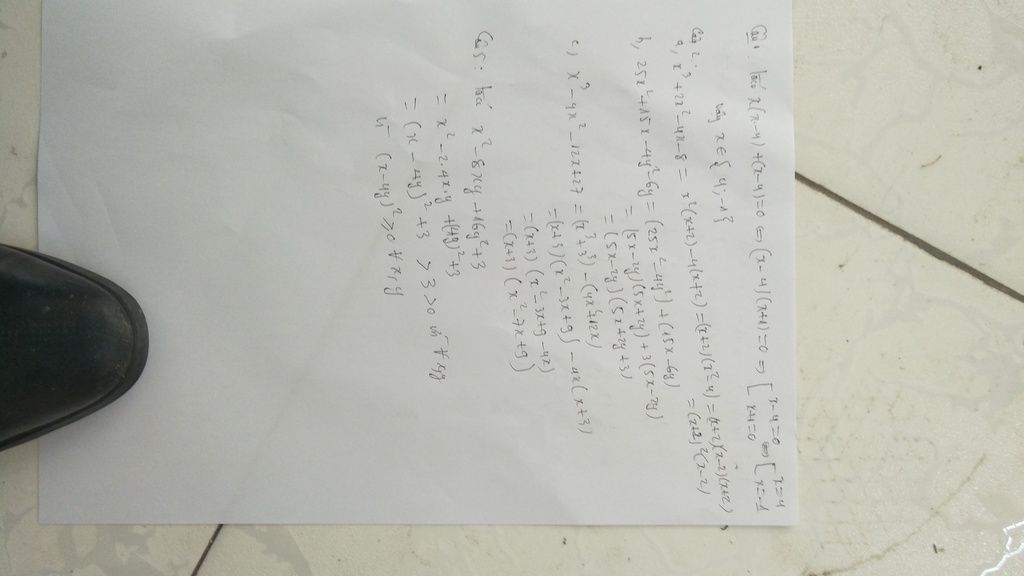 Câu 1. x(x-4)+(x-4)=0 ⇔ (x-4)(x+1)=0 ⇔ [ x-4=0 ⇔ [ x=4
x+1=0 x=-1
Vậy x∈{4;-1}
Câu 2.
a, x³+2x²-4x-8 = x²(x+2)-4(x+2) = (x+2)(x²-4) = (x+2)(x-2)(x+2)
=(x+2)²(x-2)
b, 25x²+15x-4y²-6y = (25x²-4y²)+(15x-6y)
= (5x-2y)(5x+2y)+3(5x-2y)
= (5x-2y)(5x+2y+3)
c, x³-4x²-12x+27 = (x³+3³)-(4x²+12x)
=(x+3)(x²-3x+9)-4x(x+3)
=(x+3)(x²-3x+9-4x)
=(x+3)(x²-7x+9)
Câu 5. x²-8xy+16y²+3
= x²-2.4xy+(4y)²+3
= (x-4y)²+3 >3>0
(x-4y)²≥0 ∀x,y